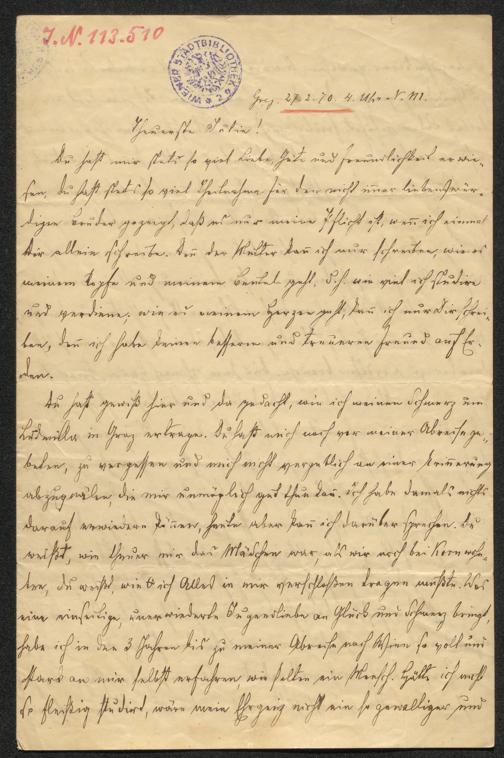 J.N. 113.510
WIENER STADTBIBLIOTHEK
Graz. 27.2.70. 4. Uhr N. M.
Theuerste Julie!
Du hast mir stets so viel Liebe, Güte und Freundlichkeit erwie-
sen, Du hast stets so viel Theilnahme für den nicht im̅er liebenswür-
digen Bruder gezeigt, daß es nur meine Pflicht ist, wen̅ ich einmal
Dir allein schreibe. Den̅ der Mutter kan̅ ich nur schreiben, wie es
meinem Kopfe und meinem Beutel geht, d.h. wie viel ich studire
und verdiene; wie es meinem Herzen geht, kan̅ ich nur Dir schrei-
ben, den̅ ich habe keinen besseren und treueren Freund auf Er-
den.
Du hast gewiß hier und da gedacht, wie ich meinen Schmerz um
Ludmilla in Graz ertrage. Du hast mich noch vor meiner Abreise ge-
beten, zu vergessen und mich nicht vergeblich an einer Erin̅erung
abzuquälen, die mir unmöglich gut thun kan̅. Ich habe damals nichts
darauf erwiedern kön̅en, heute aber kan̅ ich darüber sprechen. Du
weißt, wie theuer mir das Mädchen war, als wir noch bei Korn woh-
ten, Du weißt wie ich Alles in mir verschloßen tragen mußte. Was
eine einseitige, unerwiederte Jugendliebe an Glück und Schmerz bringt,
habe ich in den 3 Jahren bis zu meiner Abreise nach Wien so voll und
stark an mir selbst erfahren wie selten ein Mensch. Hätte ich nicht
so fleißig studirt, wäre mein Ehrgeiz nicht ein so gewaltiger und